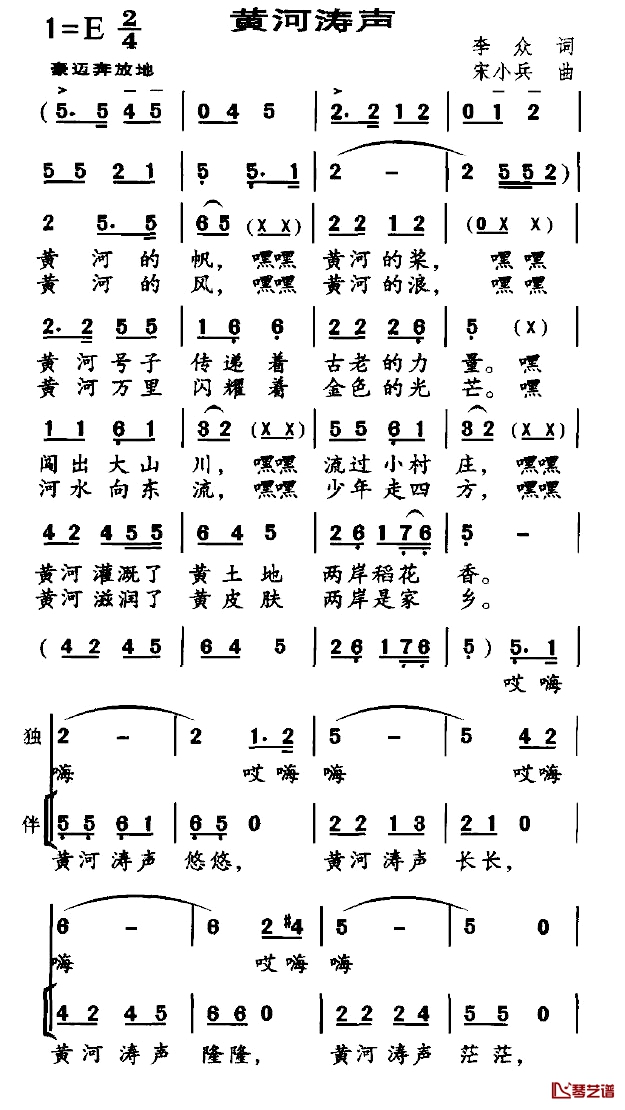 黄河涛声
1=E 2/4
李众 词
豪迈奔放地
宋小兵 曲
( 5. 5 4 5 | 0 4 5 | 2. 2 1 2 | 0 1 2 |
5 5 2 1 | 5 5. 1 | 2 - | 2 5 5 2 )
2 5. 5 | 6 5 (X X) | 2 2 1 2 | (0 X X) |
黄 河的 帆, 嘿嘿 黄河的桨, 嘿嘿
黄 河的 风, 嘿嘿 黄河的浪, 嘿嘿
2. 2 5 5 | 1 6 6 | 2 2 2 6 | 5 (X) |
黄河号子 传递着 古老的力 量。嘿
黄河万里 闪耀着 金色的光 芒。嘿
1 1 6 1 | 3 2 (X X) | 5 5 6 1 | 3 2 (X X) |
闯出大山 川, 嘿嘿 流过小村 庄, 嘿嘿
河水向东 流, 嘿嘿 少年走四 方, 嘿嘿
4 2 4 5 5 | 6 4 5 | 2 6 1 7 6 | 5 - |
黄河灌溉了 黄土地 两岸稻花 香。
黄河滋润了 黄皮肤 两岸是家 乡。
( 4 2 4 5 | 6 4 5 | 2 6 1 7 6 | 5 ) 5. 1 |
哎嗨
独 2 - | 2 1. 2 | 5 - | 5 4 2 |
嗨 哎嗨 嗨 哎嗨
伴 5 5 6 1 | 6 5 0 | 2 2 1 3 | 2 1 0 |
黄河涛声 悠悠, 黄河涛声 长长,
6 - | 6 2 #4 | 5 - | 5 0 |
嗨 哎嗨 嗨
4 2 4 5 | 6 6 0 | 2 2 2 4 | 5 5 0 |
黄河涛声 隆隆, 黄河涛声 茫茫,
琴艺谱